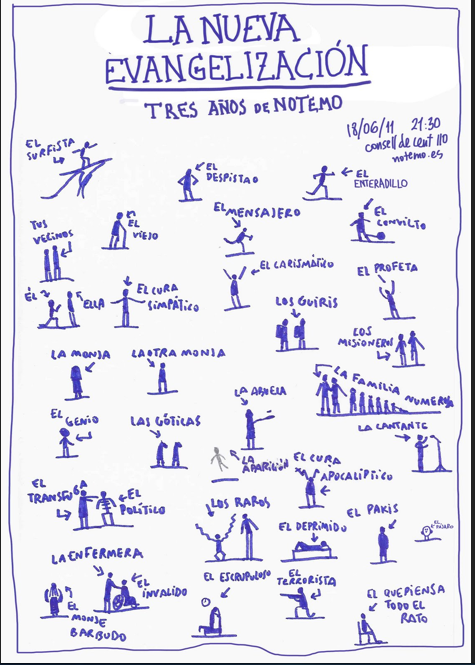 LA NUEVA
EVANGELIZACIÓN
TRES AÑOS DE NOTEMO
18/06/11 21:30
consell de cent 110
notemo.es
EL
SURFISTA
EL
DESPISTAO
EL
ENTERADILLO
TUS
VECINOS
EL
VIEJO
EL MENSAJERO
EL
CONVICTO
ÉL
ELLA
EL CURA
SIMPÁTICO
EL CARISMÁTICO
EL PROFETA
LOS GUIRIS
LOS
MISIONEROS
LA MONJA
LA OTRA MONJA
LA ABUELA
LA FAMILIA
NUMEROSA
EL
GENIO
LAS GÓTICAS
LA
APARICIÓN
EL CURA
APOCALÍPTICO
LA CANTANTE
EL
TRANSFUGA
EL
POLÍTICO
LOS RAROS
EL DEPRIMIDO
EL PAKIS
EL
PÁJARO
LA ENFERMERA
EL
INVALIDO
EL
MONJE
BARBUDO
EL ESCRUPULOSO
EL
TERRORISTA
EL QUE PIENSA
TODO EL
RATO